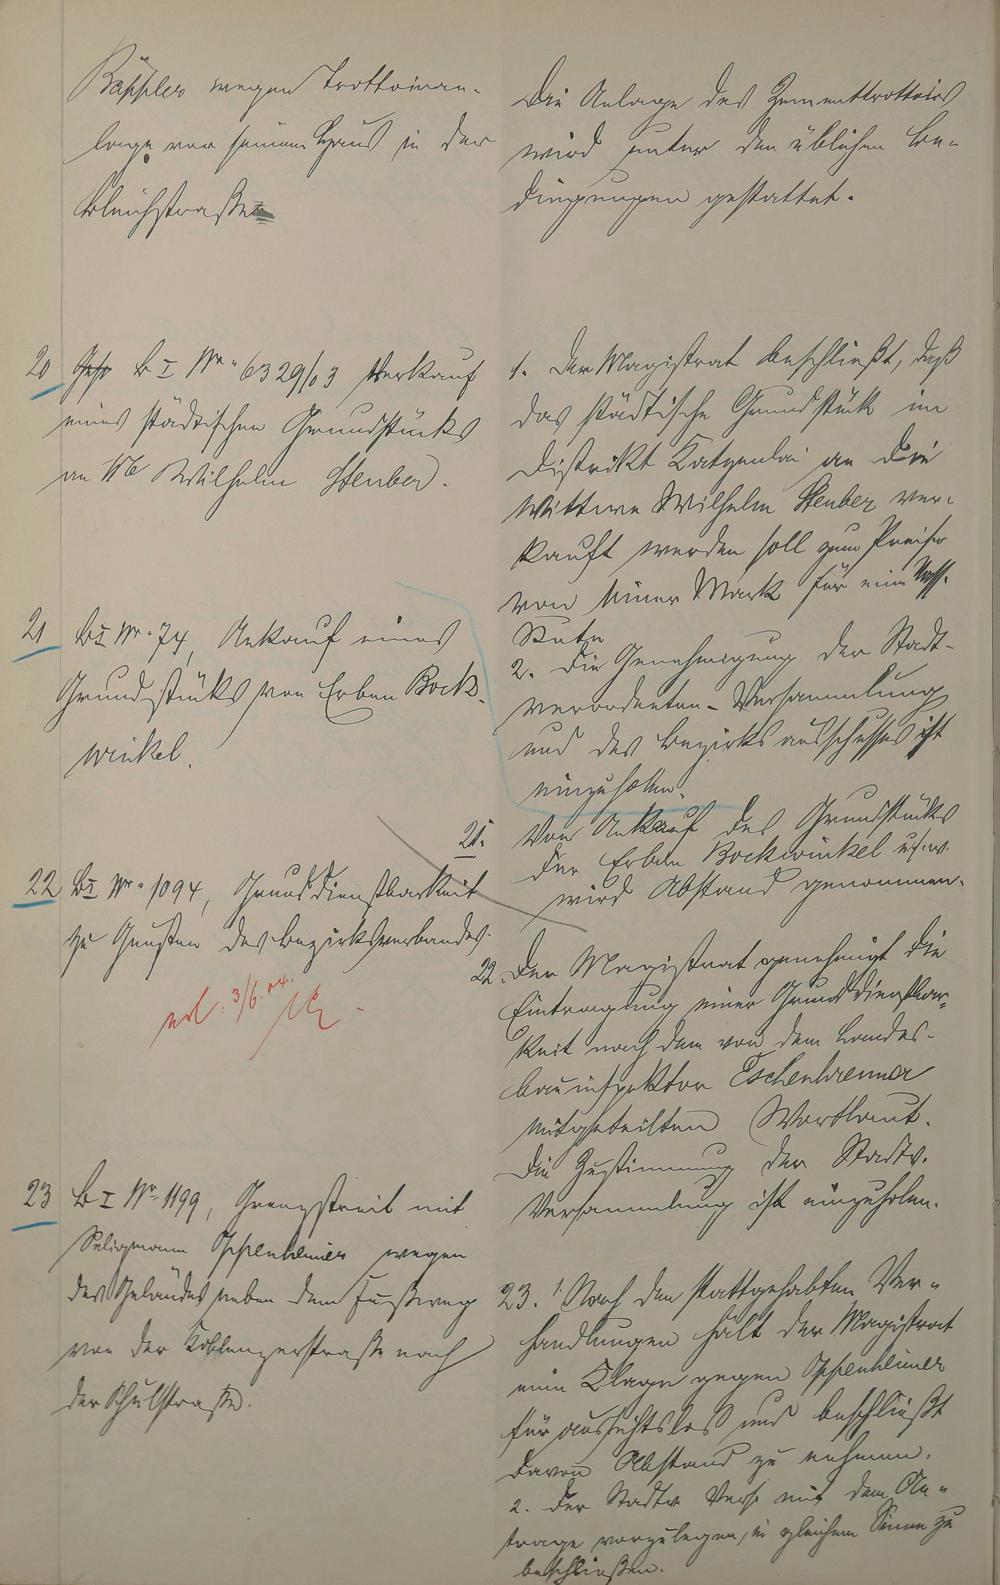 Käppler wegen Trottoiran-
lage vor seinem Haus in der
Bleichstraße
Die Anlage des Zementtrottoirs
wird unter den üblichen Be-
dingungen gestattet.
20 B I Nr. 6329/03 Verkauf
eines städtischen Grundstücks
an Wb Wilhelm Steuber.
1. Der Magistrat beschließt, daß
das städtische Grundstück im
Distrikt an die
Wittwe Wilhelm Steuber ver-
kauft werden soll zum Preise
von einer Mark für eine
Rute
2. Die Genehmigung der Stadt-
verordneten-Versammlung
und des Bezirksausschusses ist
einzuholen.
21 B I Nr. 74, Ankauf eines
Grundstücks von Erben Bock-
winkel.
21. Von Ankauf des Grundstücks
der Erben Bockwinkel u.s.w.
wird Abstand genommen.
22 B I Nr. 1094, Grunddienstbarkeit
zu Gunsten des Bezirksverbandes.
erl. 3/6.04.
22. Der Magistrat genehmigt die
Eintragung einer Grunddienstbar-
keit nach dem von dem Landes-
bauinspektor Eschenbrenner
mitgeteilten Wortlaut.
Die Zustimmung der Stadtv.
Versammlung ist einzuholen.
23 B I Nr. 1199, Grenzstreit mit
Seligmann Oppenheimer wegen
des Geländes neben dem Fußweg
von der Koblenzerstraße nach
der Schulstraße.
23. 1. Nach den stattgehabten Ver-
handlungen hält der Magistrat
eine Klage gegen Oppenheimer
für aussichtslos und beschließt
davon Abstand zu nehmen.
2. Der Stadtv. Vers. mit dem An-
trage vorzulegen, in gleichem Sinne zu
beschließen.